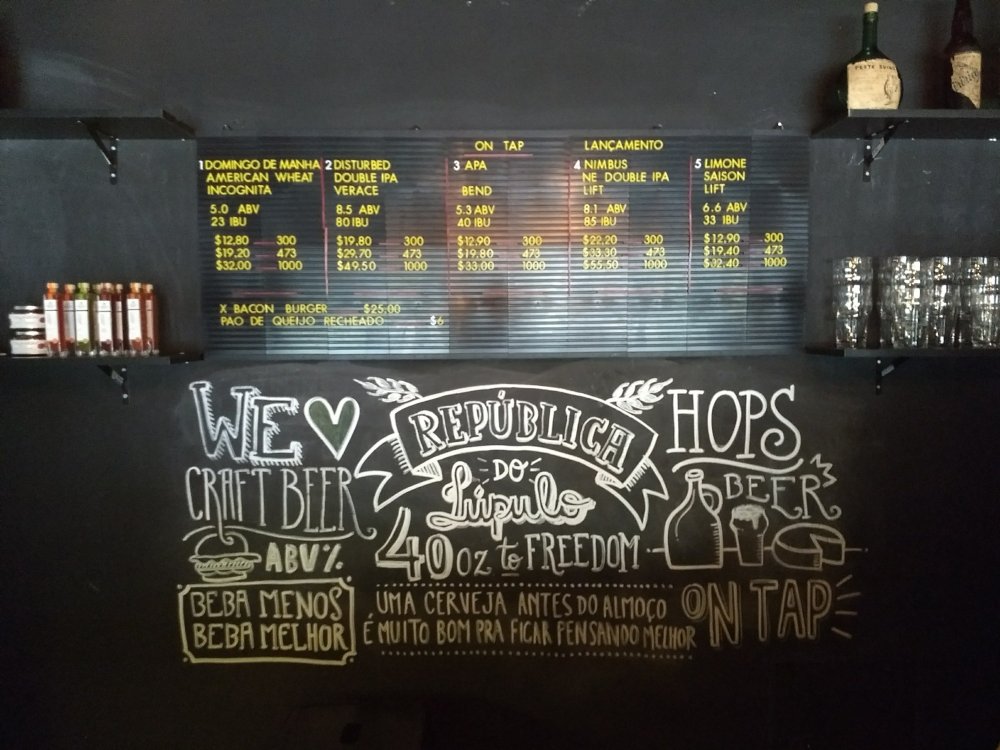 ON TAP
LANÇAMENTO
1 DOMINGO DE MANHA
AMERICAN WHEAT
INCOGNITA
5.0 ABV
23 IBU
$12,80 300
$19,20 473
$32,00 1000
2 DISTURBED
DOUBLE IPA
VERACE
8.5 ABV
80 IBU
$19,80 300
$29,70 473
$49,50 1000
3 APA
BEND
5.3 ABV
40 IBU
$12,90 300
$19,80 473
$33,00 1000
4 NIMBUS
NE DOUBLE IPA
LIFT
8.1 ABV
85 IBU
$22,20 300
$33,30 473
$55,50 1000
5 LIMONE
SAISON
LIFT
6.6 ABV
33 IBU
$12,90 300
$19,40 473
$32,40 1000
X BACON BURGER $25,00
PAO DE QUEIJO RECHEADO $6
WE
CRAFT BEER
ABV%
BEBA MENOS
BEBA MELHOR
REPÚBLICA
DO
Lúpulo
40 oz to FREEDOM
UMA CERVEJA ANTES DO ALMOÇO
É MUITO BOM PRA FICAR PENSANDO MELHOR
HOPS
BEER
ON TAP